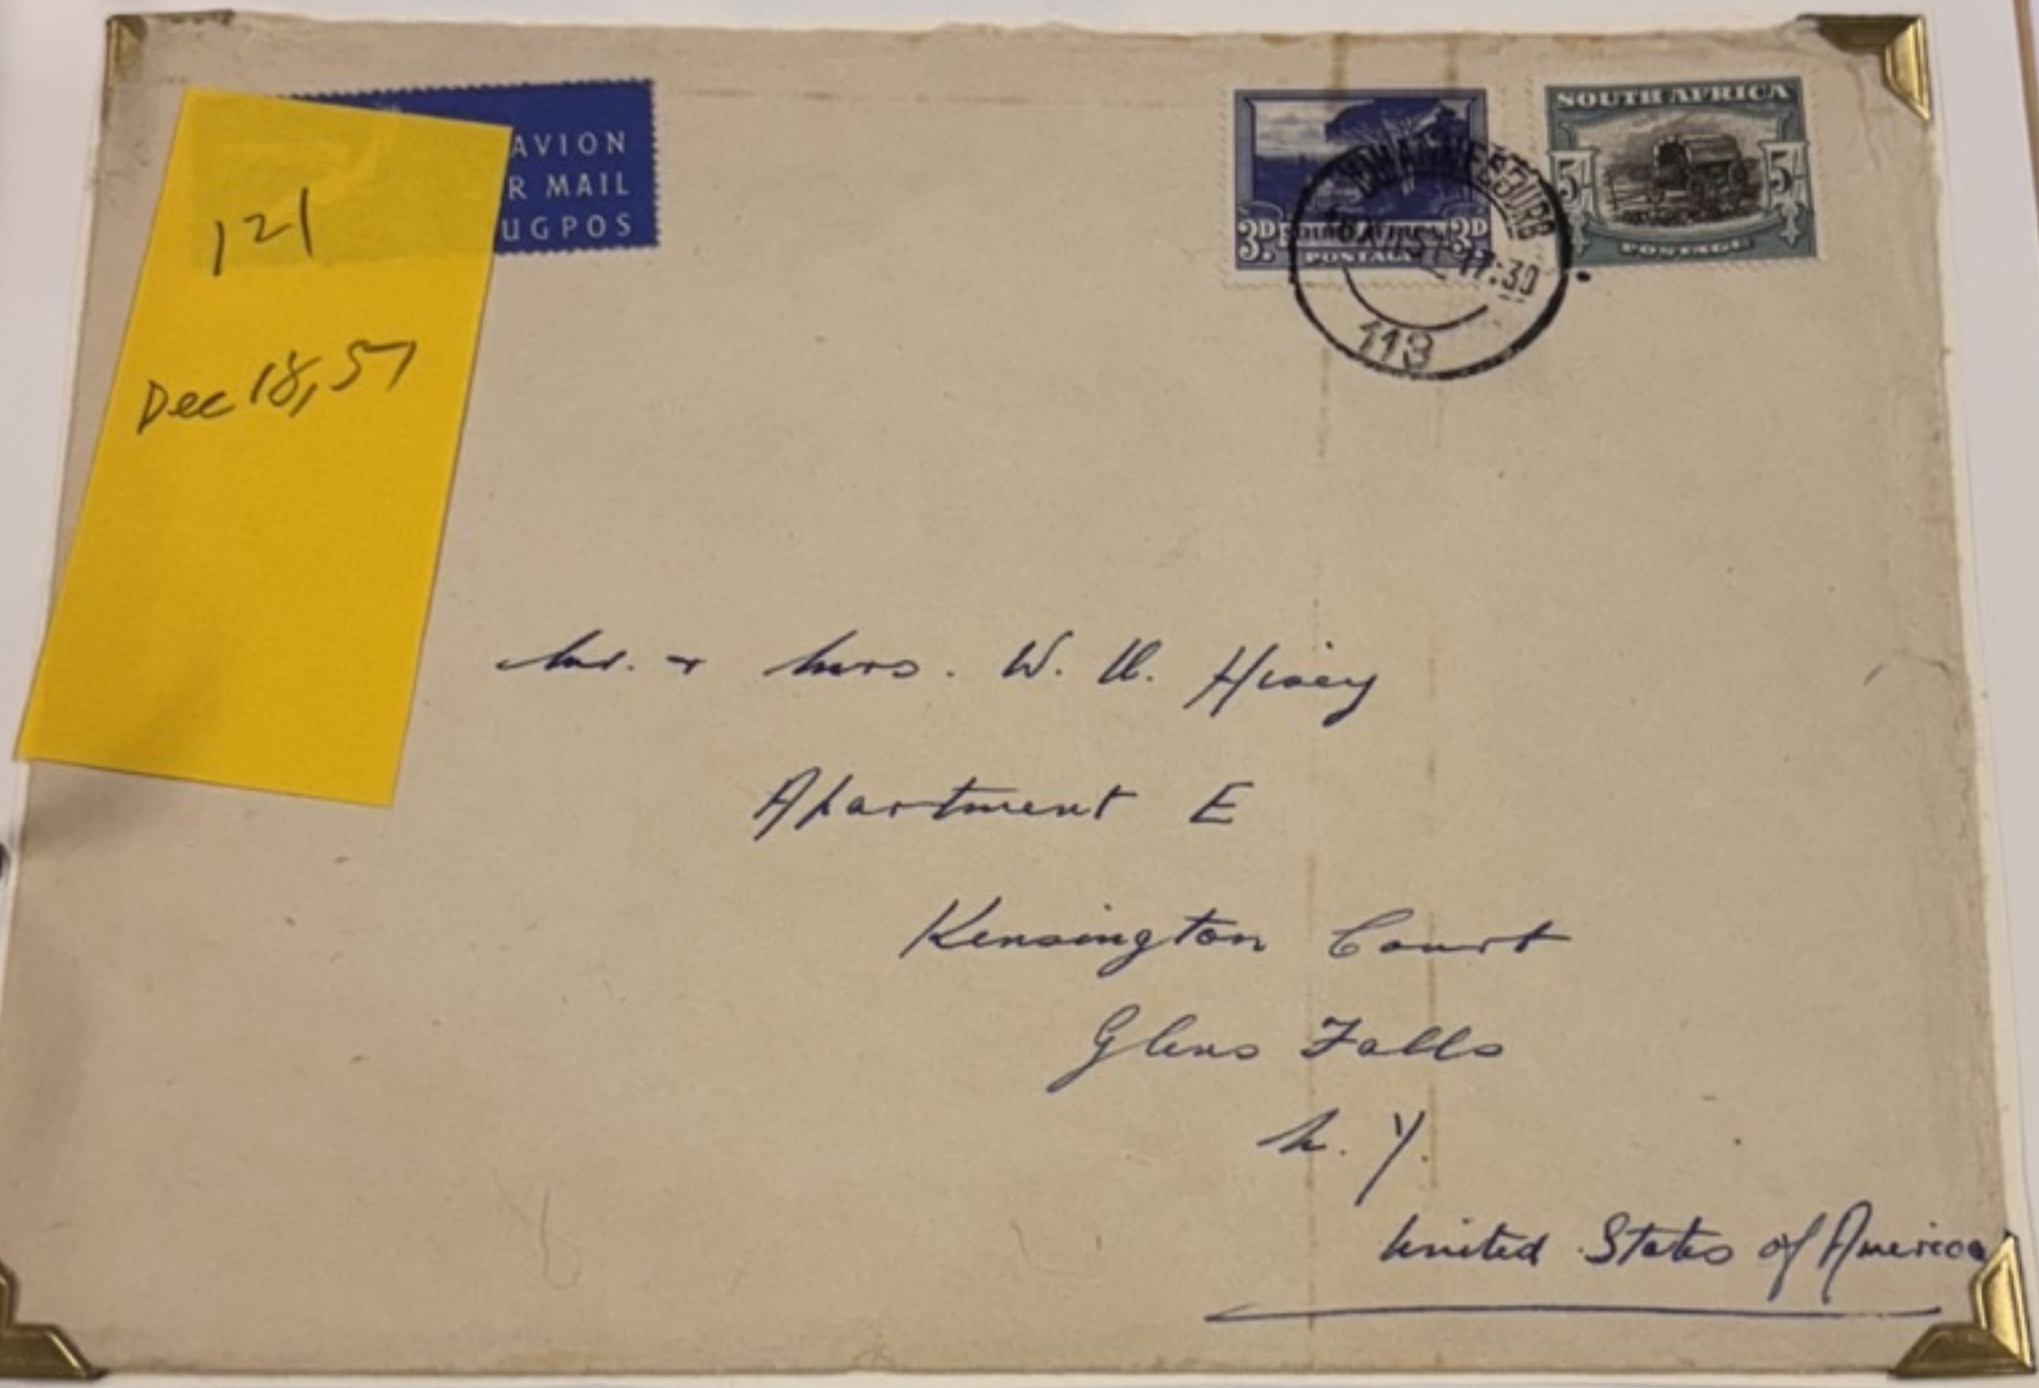 121
Dec 18, 57
AVION
R MAIL
UGPOS
3D SOUTH AFRICA 3D
POSTAGE
SOUTH AFRICA
5/- 5/-
POSTAGE
JOHANNESBURG
18 XII 57 17:30
113
Mr. + Mrs. W. H. Hivey
Apartment E
Kensington Court
Glens Falls
N. Y.
United States of America